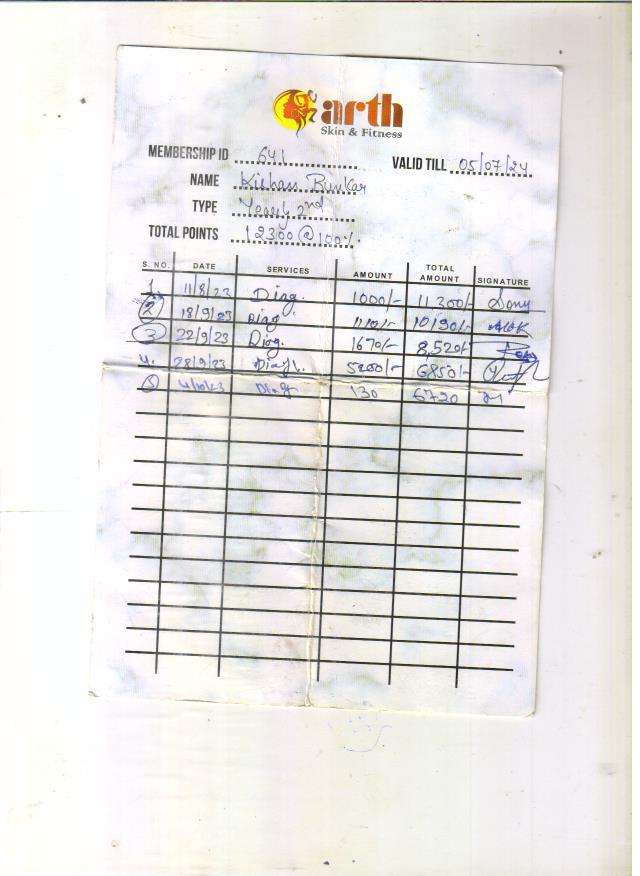 arth
Skin & Fitness
MEMBERSHIP ID 641 VALID TILL 05/07/24
NAME Kishan Bunkar
TYPE Yearly 2nd
TOTAL POINTS 12300 @ 100%.
S. NO. DATE SERVICES AMOUNT TOTAL AMOUNT SIGNATURE
1. 11/8/23 Diag. 1000/- 11300/-
2 18/9/23 Diag. 1110/- 10190/-
3 22/9/23 Diag. 1670/- 8,520/-
4. 28/9/23 5200/- 6850/-
5 4/10/23 Diag 130 6720